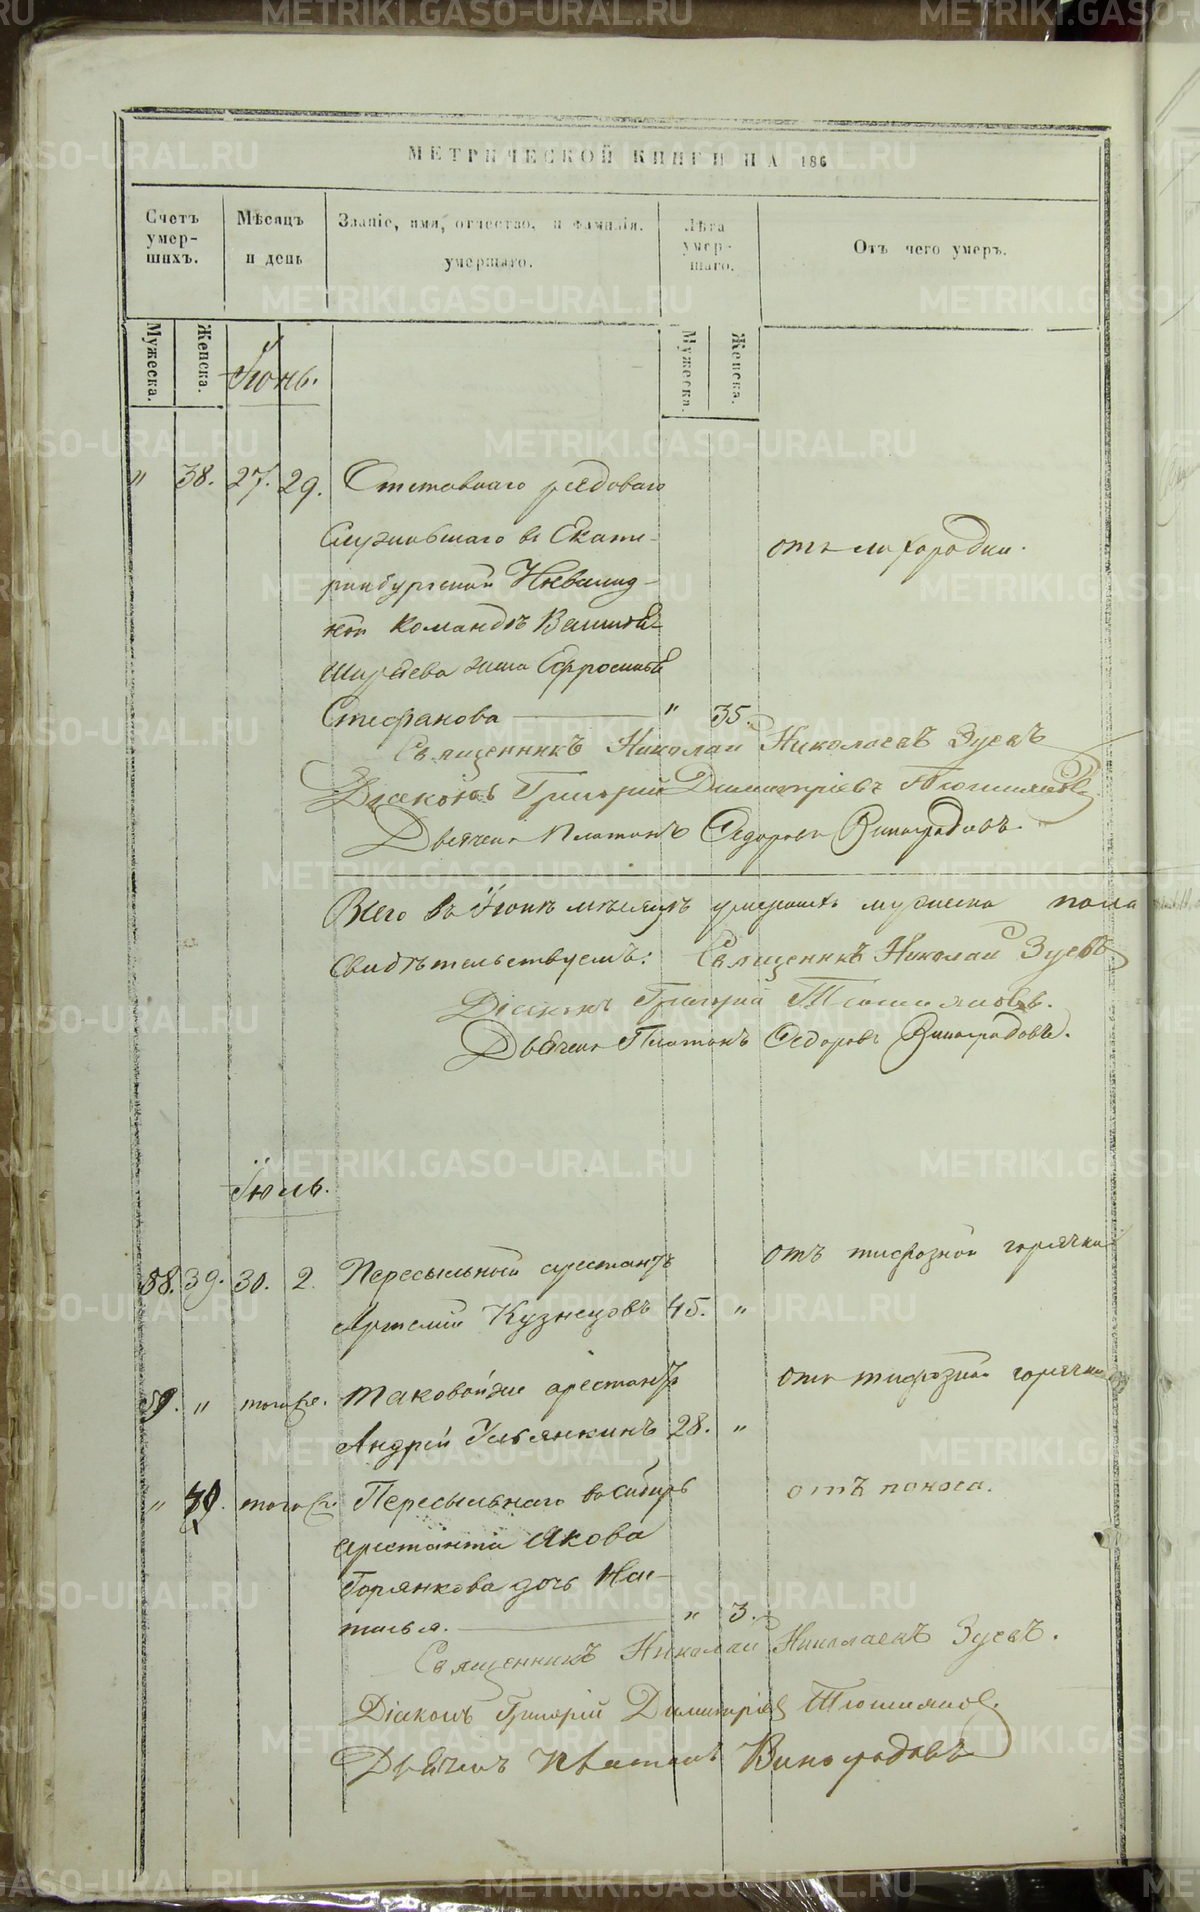 МЕТРИЧЕСКОЙ КНИГИ НА 186
Счетъ умер-шихъ.
Мѣсяцъ и день
Званіе, имя, отчество, и фамилія. умершаго.
Лѣта умер-шаго.
Отъ чего умеръ.
Мужеска. Женска.
Мужеска. Женска.
Іюнь.
" 38. 27. 29. Отставнаго рядоваго
Служившаго въ Екате-
ринбургской Инвалид-
ной командѣ
жена Ефросинья
Стефанова " 35.
отъ лихорадки.
Священникъ Николай Николаевъ Зуевъ
Діаконъ Григорій Димитріевъ
Дьячекъ Платонъ Ѳедоровъ Виноградовъ.
Всего въ Іюнѣ мѣсяцѣ умершихъ мужеска пола
Свидѣтельствуемъ: Священникъ Николай Зуевъ
Діаконъ Григорій
Дьячекъ Платонъ Ѳедоровъ Виноградовъ.
Іюль.
58. 39. 30. 2. Пересыльный арестантъ
Артемій Кузнецовъ 45. "
отъ тифозной горячки
59. " того же. Таковой же арестантъ
Андрей Ульянкинъ 28. "
отъ тифозной горячки
" того же. Пересыльнаго въ Сибирь
арестанта Якова
Горянкова дочь На-
талья. " 3.
отъ поноса.
Священникъ Николай Николаевъ Зуевъ.
Діаконъ Григорій Димитріев
Дьячекъ Платонъ Виноградовъ
METRIKI.GASO-URAL.RU